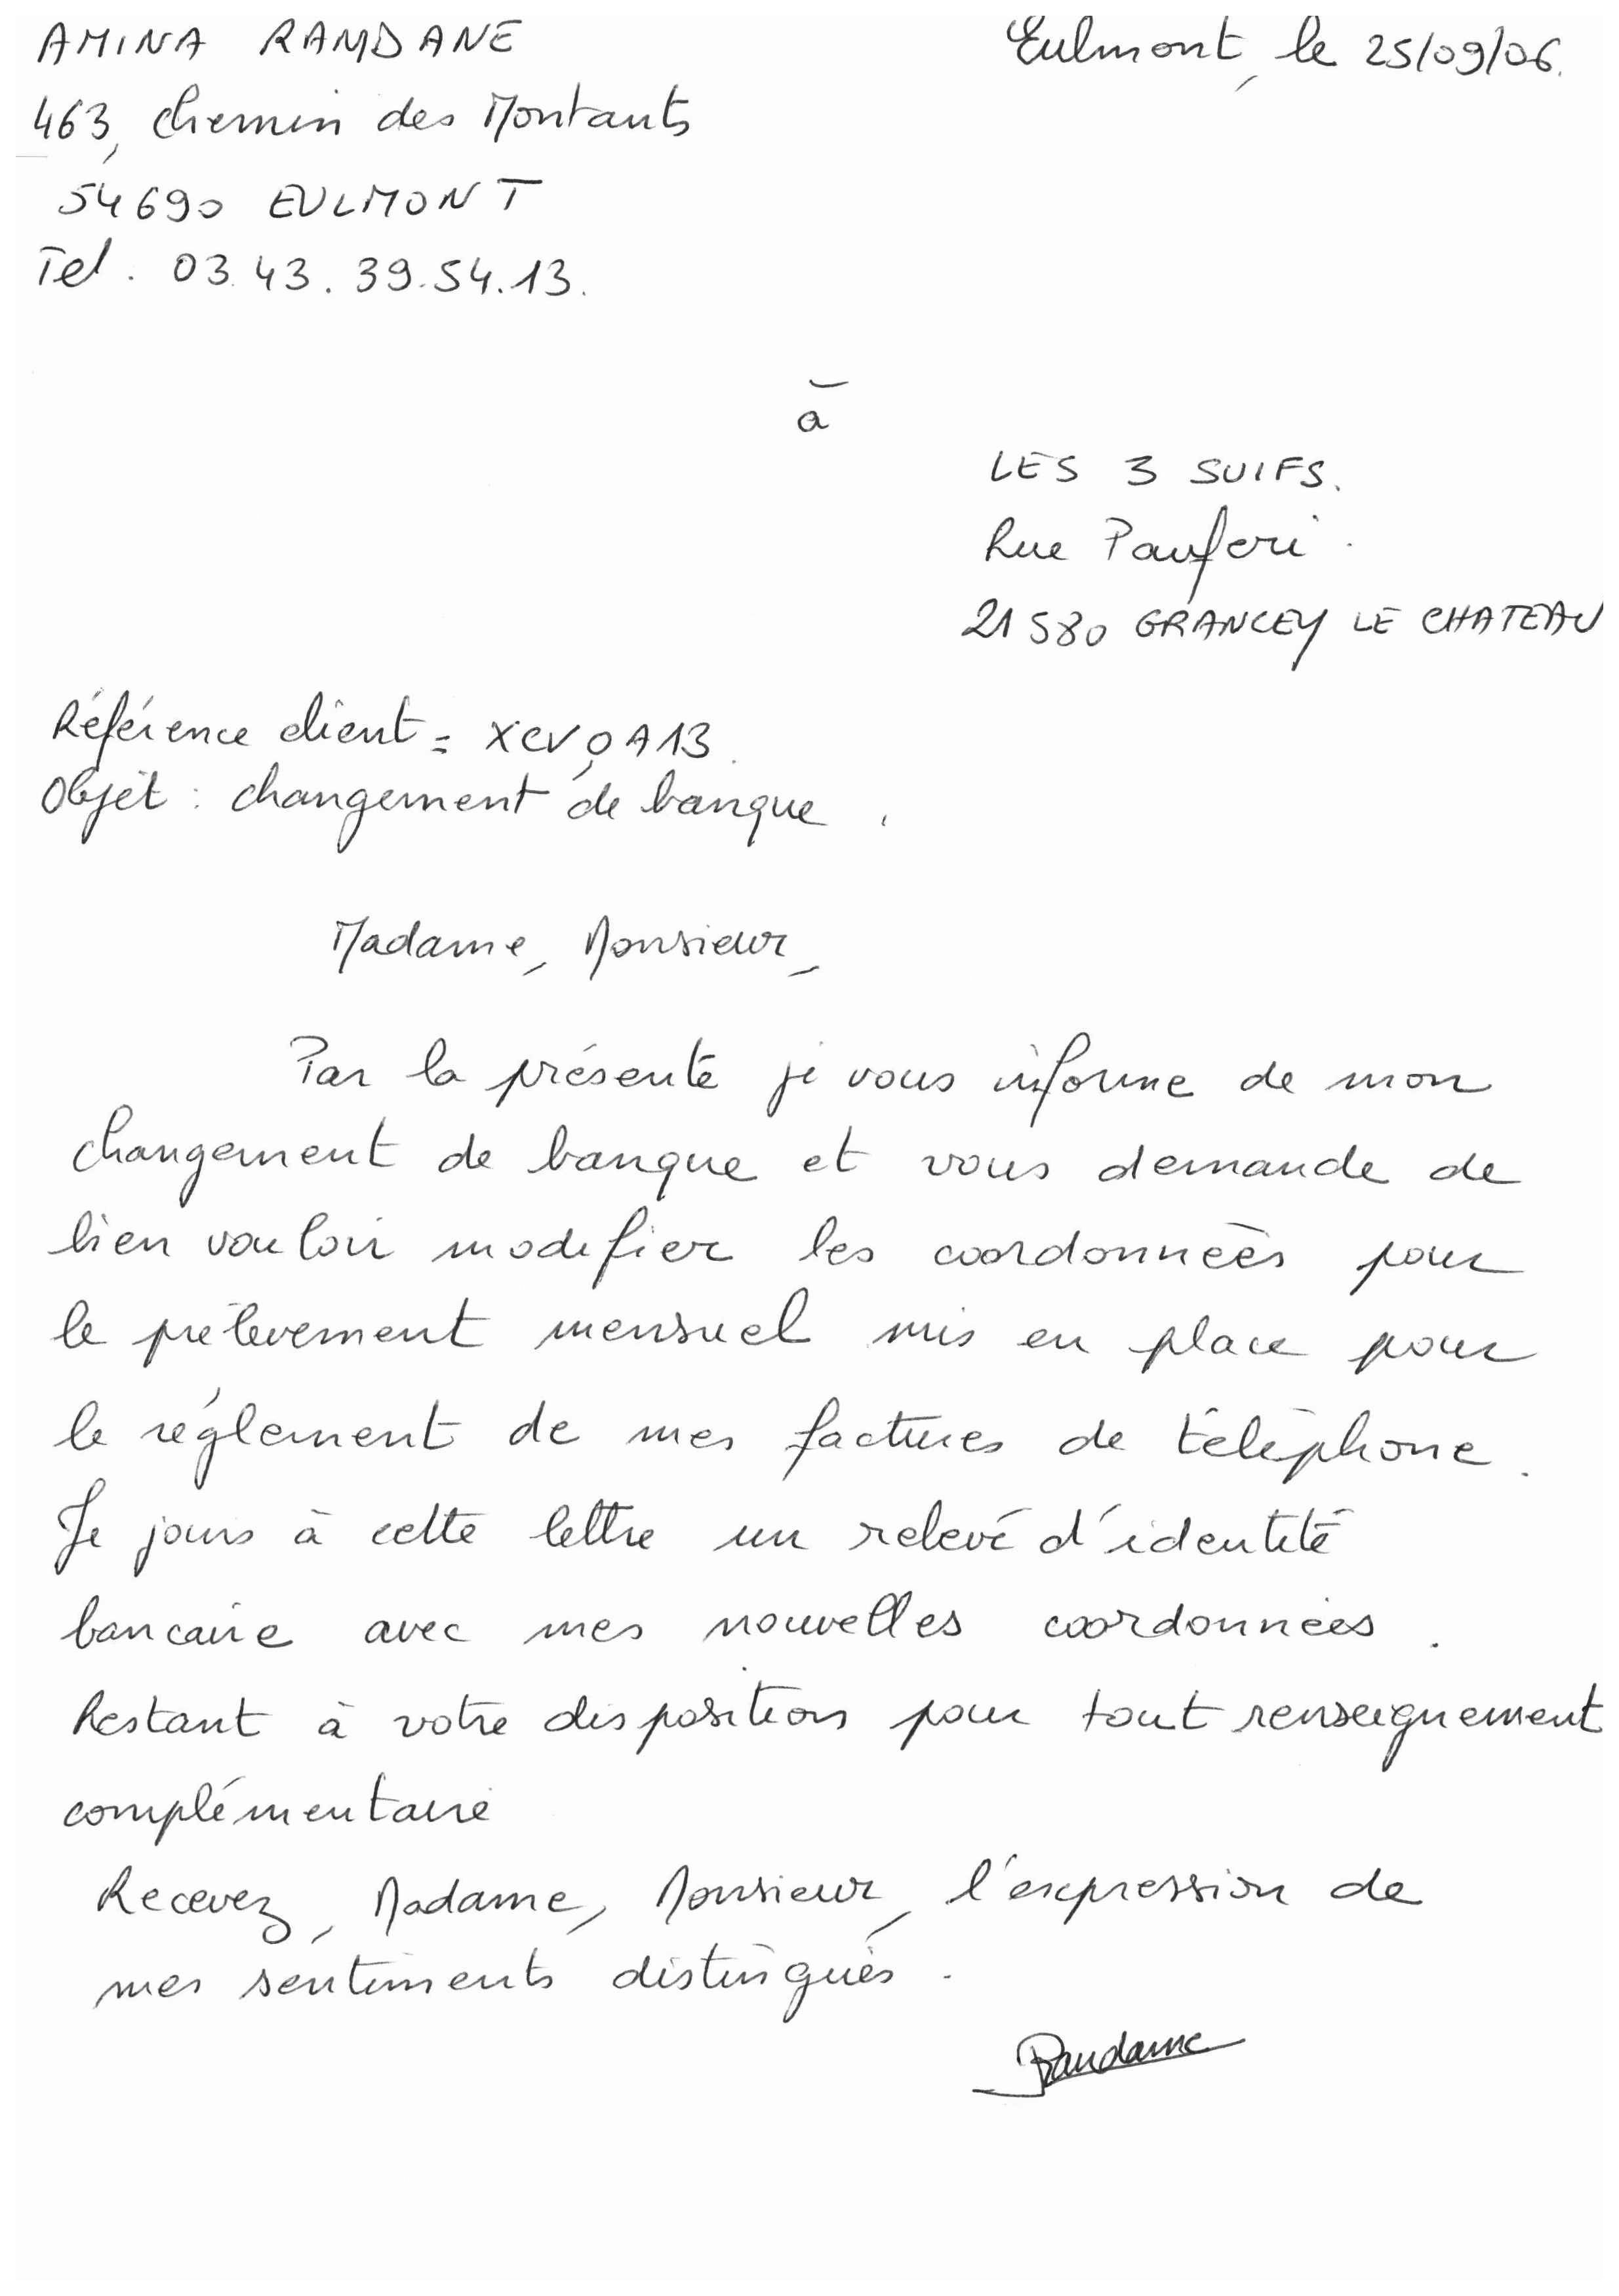 AMINA RAMDANE
Eulmont, le 25/09/06.
463, chemin des Montants
54690 EULMONT
Tel. 03.43.39.54.13.
à
LES 3 SUIFS.
Rue Pauferi.
21580 GRANCEY LE CHATEAU
Référence client = XCVQA13.
Objet : changement de banque.
Madame, Monsieur,
Par la présente je vous informe de mon
changement de banque et vous demande de
bien vouloir modifier les coordonnées pour
le prélevement mensuel mis en place pour
le réglement de mes factures de téléphone.
Je jouns à cette lettre un relevé d'identité
bancaire avec mes nouvelles coordonnées.
Restant à votre disposition pour tout renseignement
complémentaire
Recevez, Madame, Monsieur, l'expression de
mes sentiments distingués.
Ramdane